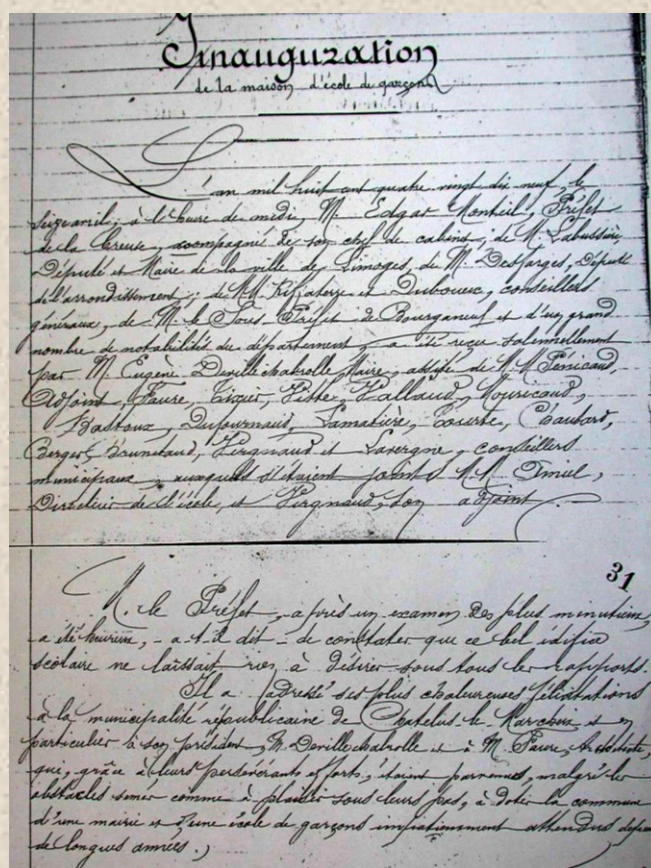 Inauguration
de la maison d'école de garçons
L'an mil huit cent quatre vingt dix neuf, le
seize avril, à l'heure de midi, M. Edgar Monteil, Préfet
de la Creuse, accompagné de son chef de cabinet, de M. Labussière,
Député et Maire de la ville de Limoges, de M. Desfarges, Député
de l'arrondissement; de MM. et Dubouex, conseillers
généraux, de M. le Sous-Préfet de Bourganeuf et d'un grand
nombre de notabilité du département, a été reçu solennellement
par M. Eugène Devillechabrolle, Maire, assisté de MM. Pénicaud,
Adjoint, Faure, Tixier, Vallaud, Mouricaud,
Bastoux, Dufournaud, Lamatière, Coutard,
Berger, Brunetaud, Vergnaud et Lavergne, conseillers
municipaux, auxquels s'étaient joints MM.
Directeur de l'école, et Vergnaud, son adjoint
31
M. le Préfet, après un examen des plus minutieux,
a été heureux, - a-t-il dit - de constater que ce bel édifice
scolaire ne laissait rien à désirer sous tous les rapports.
Il a adressé ses plus chaleureuses félicitations
à la municipalité républicaine de Chatelus-le-Marcheix et en
particulier à son président, M. Devillechabrolle et à M. Faure, Architecte,
qui, grâce à leurs persévérants efforts, étaient parvenus, malgré les
obstacles semés comme à plaisir sous leurs pas, à doter la commune
d'une mairie et d'une école de garçons impatiemment attendus depuis
de longues années.